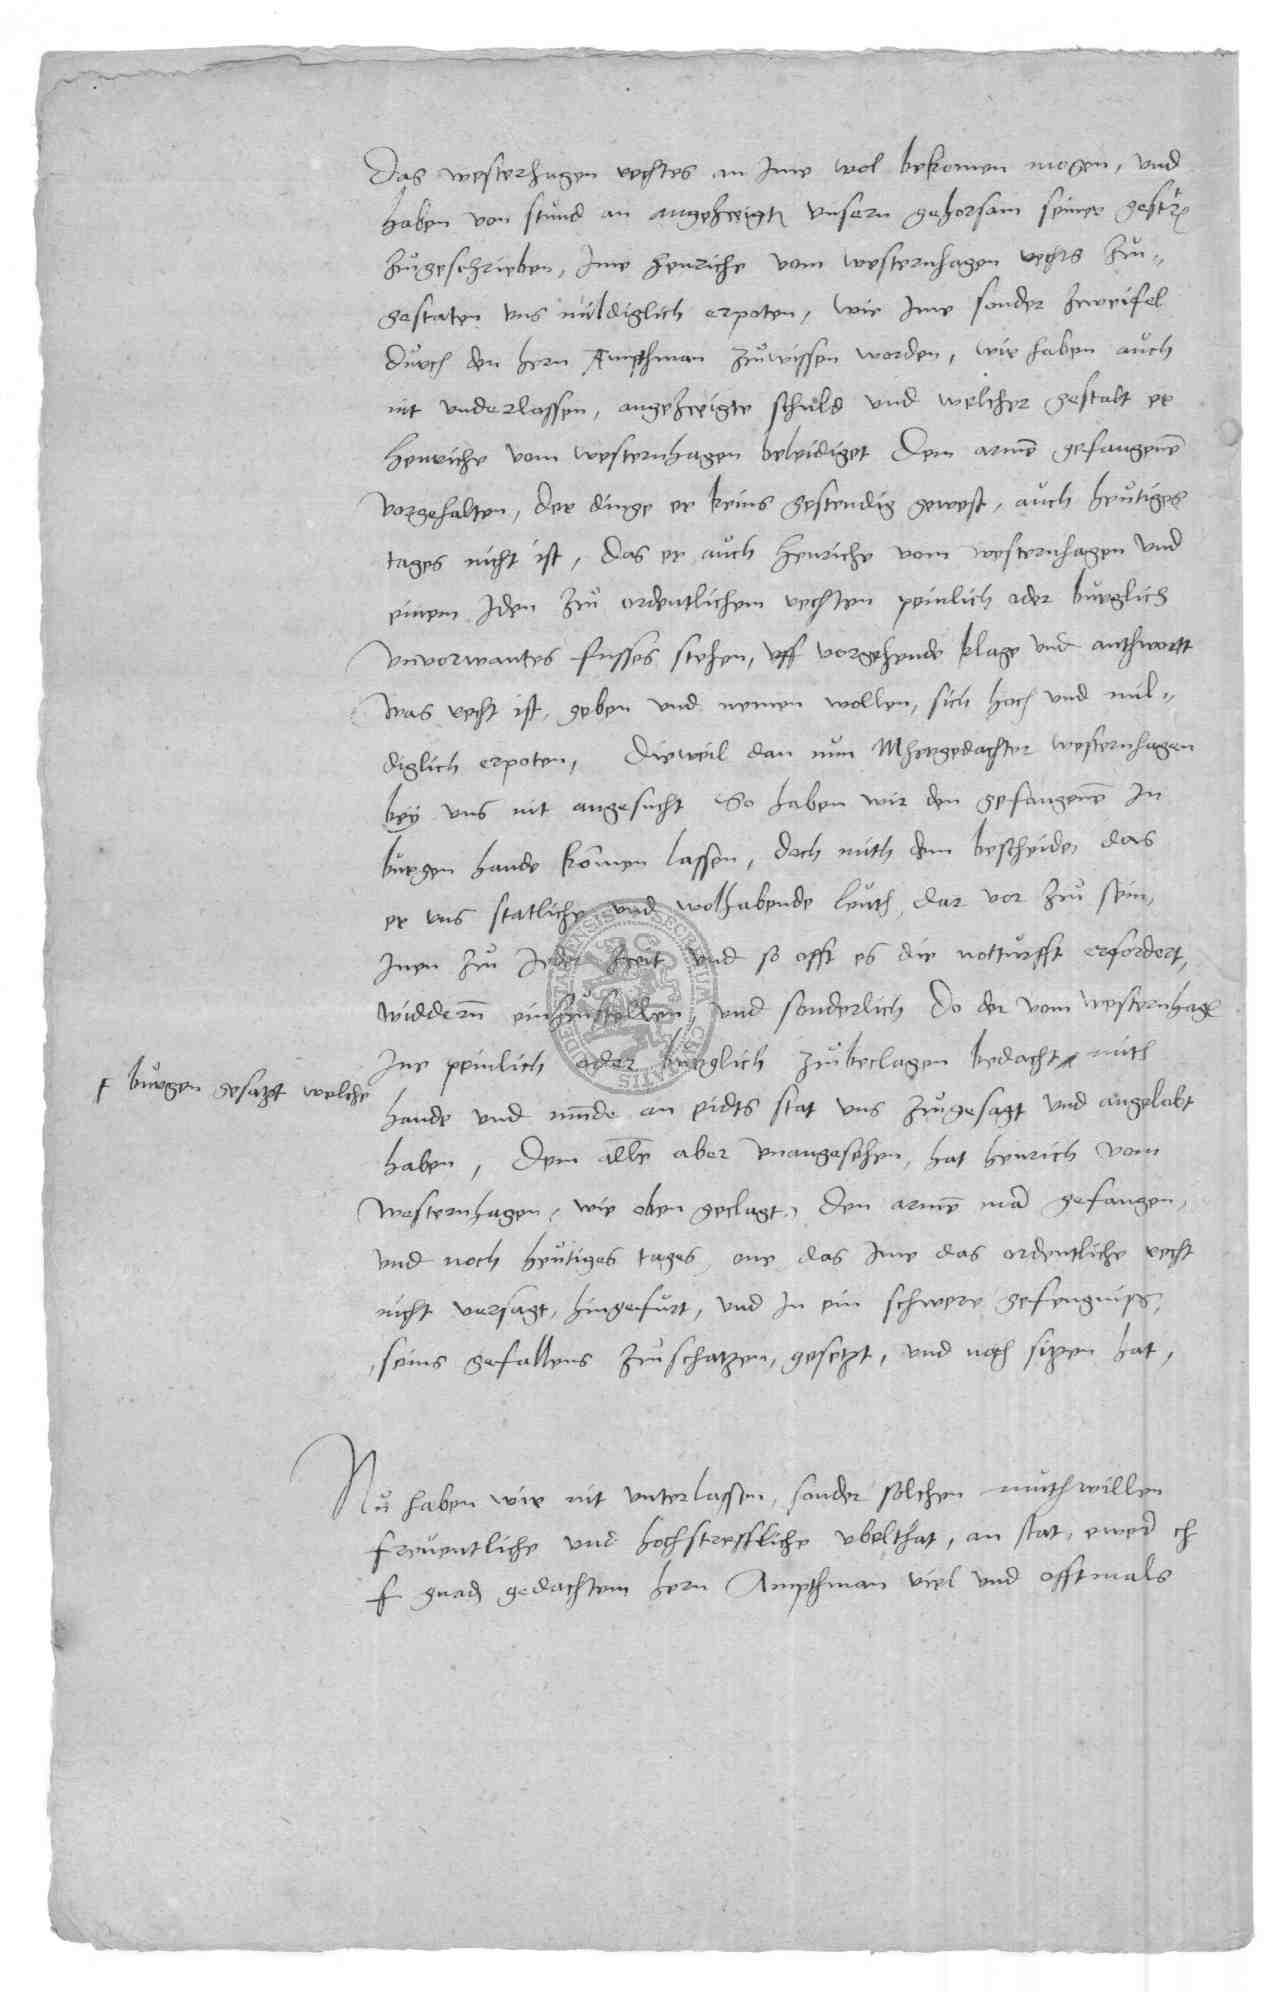 Das westerhagen rechtes an Ime wol bekomen mogen, vnd
haben von stund an angezeigt vnsern gehorsam seiner gestr
zugeschrieben, Ime Henriche vom westernhagen rechts zu„
gestaten vns mildiglich erpoten, wie Ime sonder zweifel
durch den hern Ampthman zuwissen worden, wir haben auch
nit vnderlassen, angezeigte schuld vnd welcher gestalt er
Henriche vom westernhagen beleidiget Dem arme gefangene
vorgehalten, der dinge er keins gestendig gewest, auch heutiges
tages nicht ist, Das er auch Henriche vom westernhagen vnd
einem Iden zu ordentlichem rechten peinlich oder burglich
vnvorwantes fusses stehen, vff vorgehende klage vnd anthwortt
Was recht ist, geben vnd nemen wollen, sich hoch vnd mil„
diglich erpoten, Dieweil dan nun Mhergedachter westernhagen
bey vns nit angesucht So haben wir den gefangene In
burgen hande komen lassen, doch mith dem bescheide, das
er vns statliche vnd wolhabende leuth, dar vor zu sein,
Inen zu Ieder zeit vnd so offt es die notturfft erfordert,
widdern einzustellen, vnd sonderlich Do der vom westernhage
Ine peinlich oder burglich zubeclagen bedacht mith
f burgen gesatzt welche
hande vnd munde an eidts stat vns zugesagt vnd angelobt
haben, Dem alle aber vnangesehen, hat Henrich vom
Westernhagen, wie oben geclagt, Den arme ma gefangen,
vnd noch heutiges tages, one das Ime das ordentliche recht
nicht versagt, hingefurt, vnd In ein schwere gefengniss,
seins gefallens zuschatzen, gesetzt, vnd noch sitzen hat,
Nu haben wir nit vnterlassen, sonder solchen muthwillen
freuentliche vnd hochstreffliche vbelthat, an stat, ewer ch
f gnad gedachtem hern Ampthman viel vnd offtmals
SECRETUM CIVITATIS